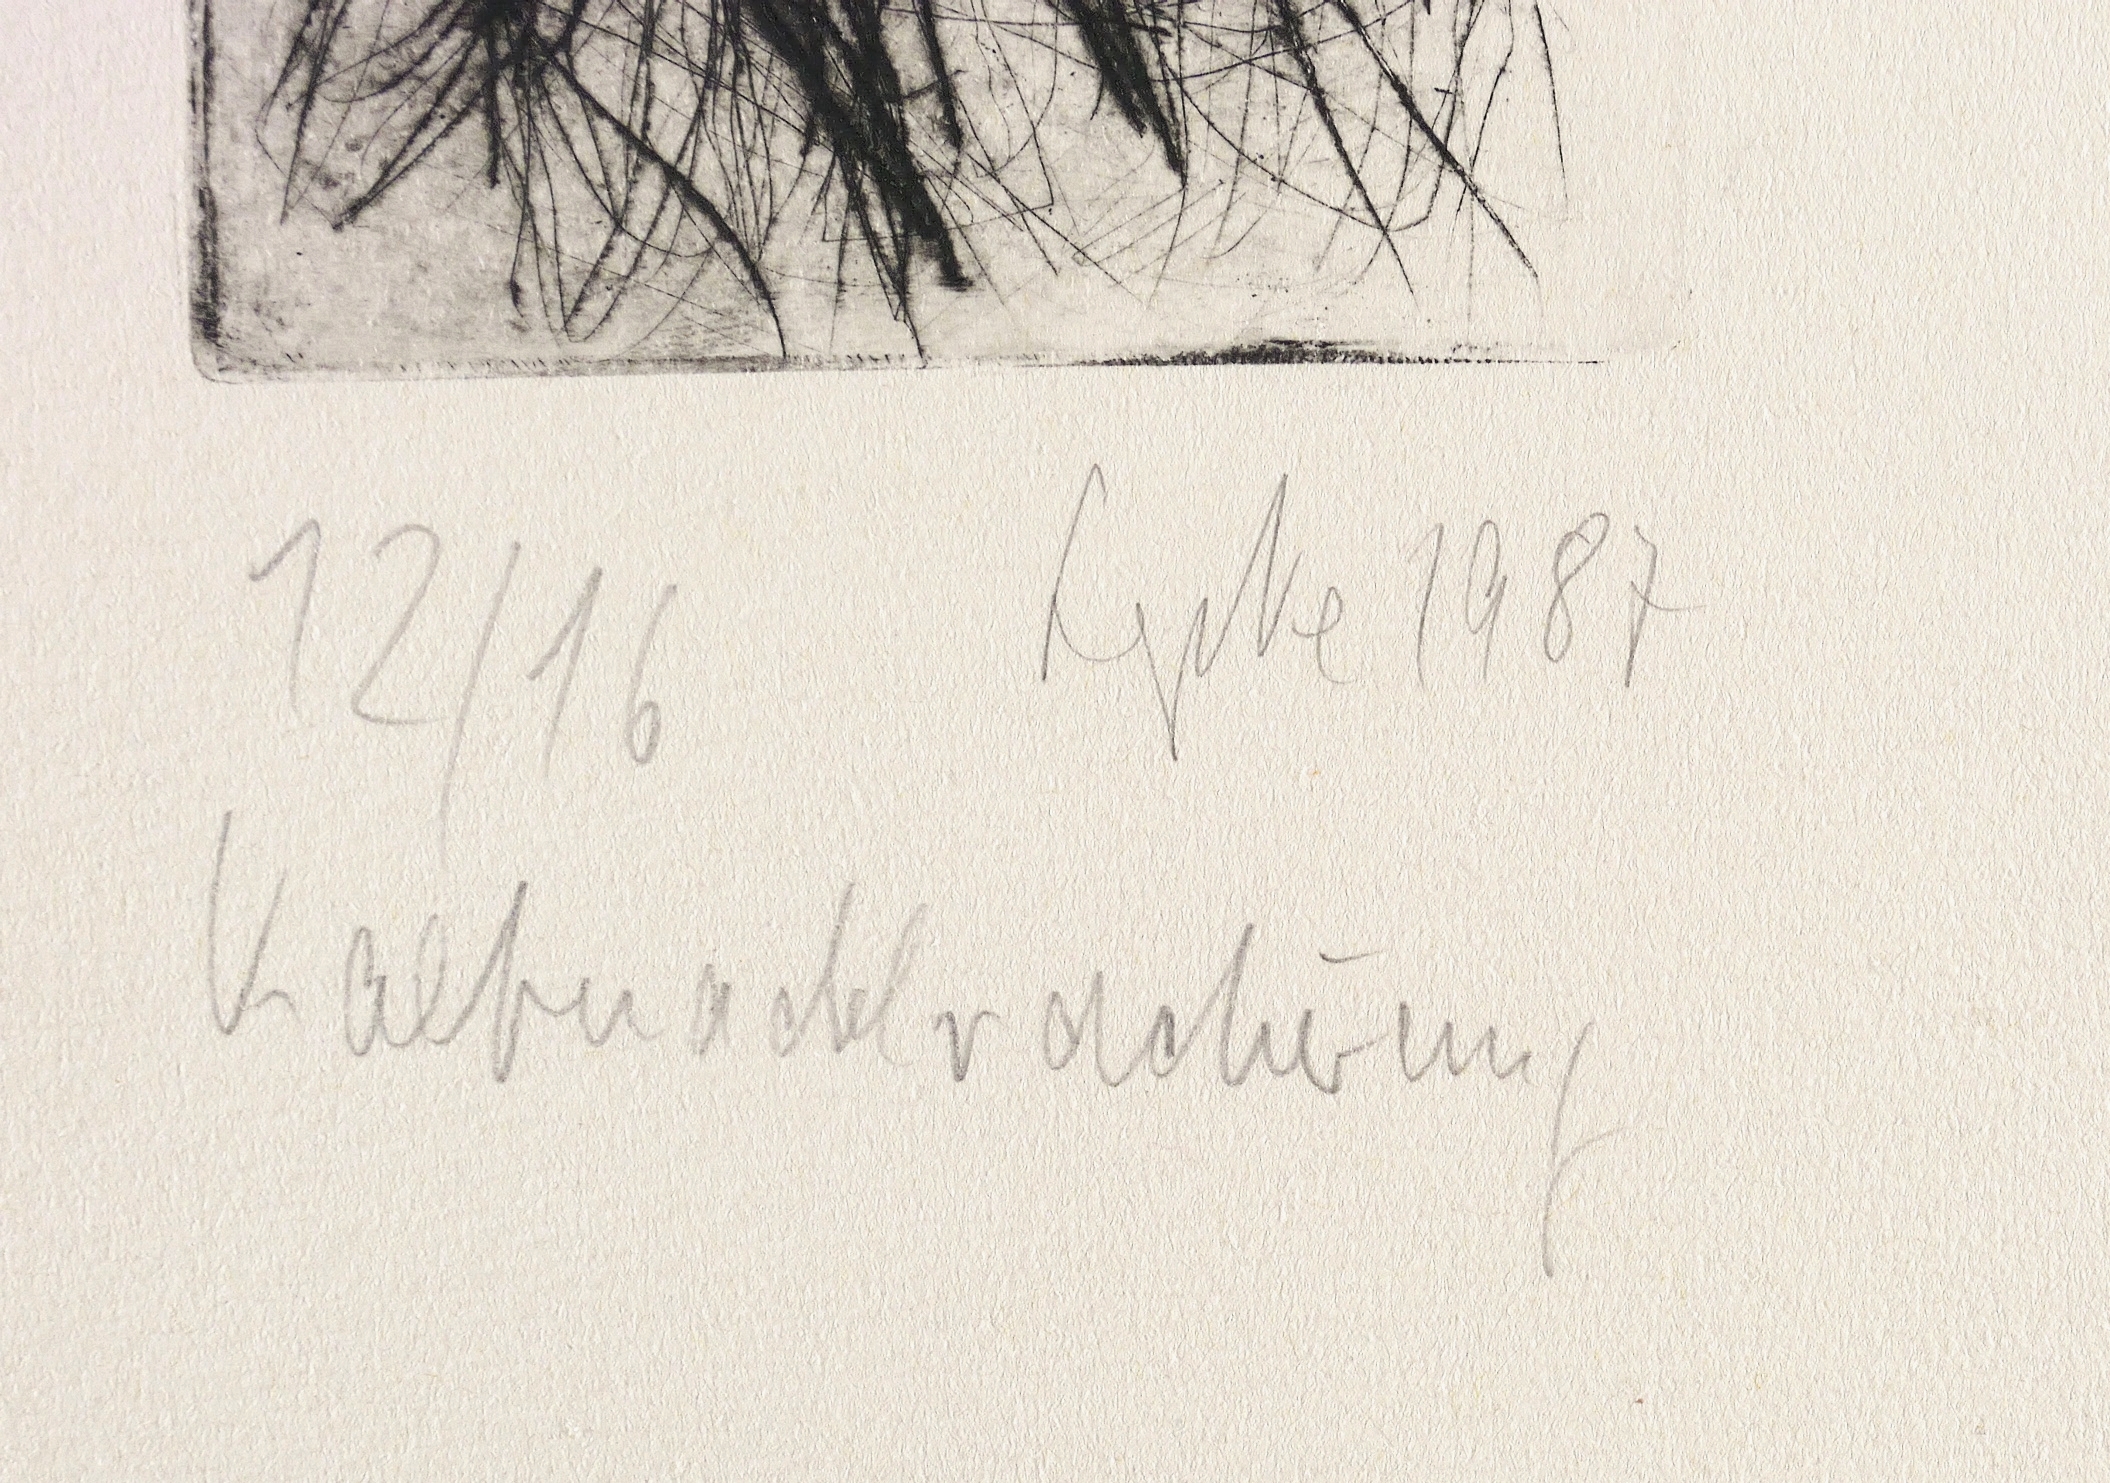 12/16 1987
Kaltnadelradierung